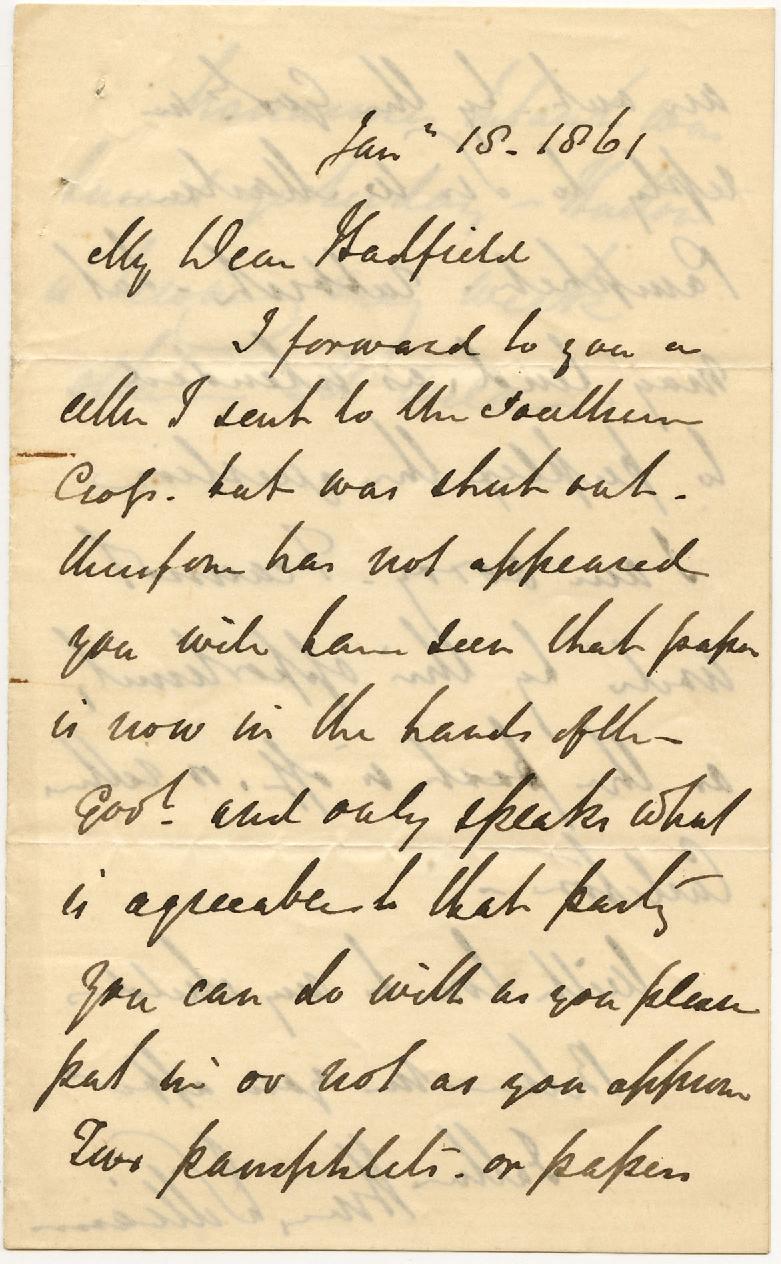 Jany 18. 1861
My Dear Hadfield
I forward to you a
letter I sent to the Southern
Cross. but was shut out.
therefore has not appeared
you will have seen that paper
is now in the hands of the
Govt. and only speaks what
is agreeable to that party
You can do with as you please
put in or not as you approve
Two pamphlets. or papers